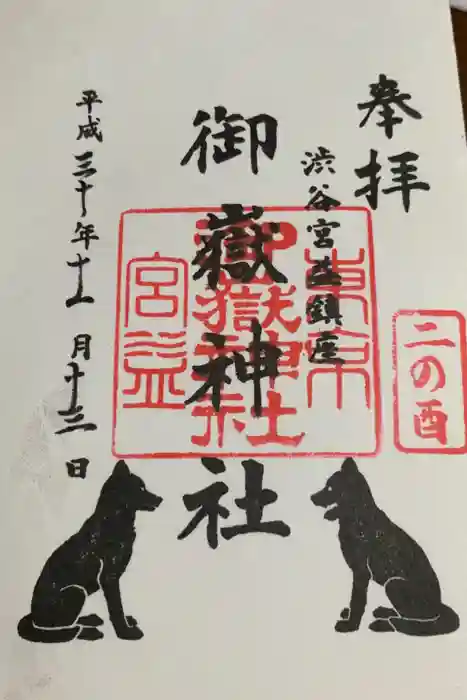 奉拝
渋谷宮益鎮座
御嶽神社
平成三十年十一月十三日
二の酉
東京
御嶽神社
宮益